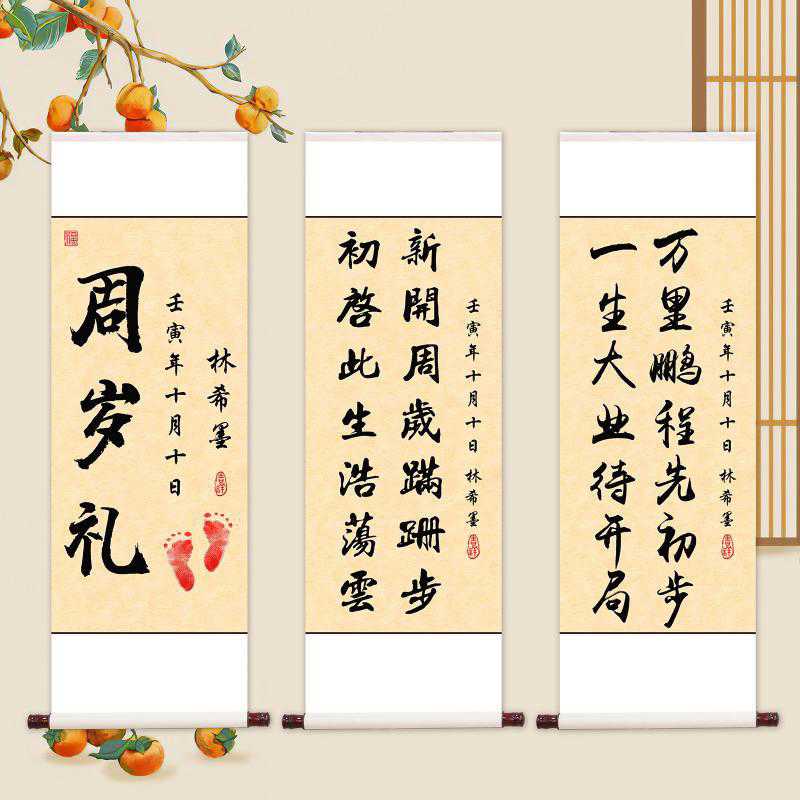 周岁礼
壬寅年十月十日
林希墨
新開周歲蹣跚步
初啓此生浩蕩雲
壬寅年十月十日 林希墨
万里鹏程先初步
一生大业待开局
壬寅年十月十日 林希墨